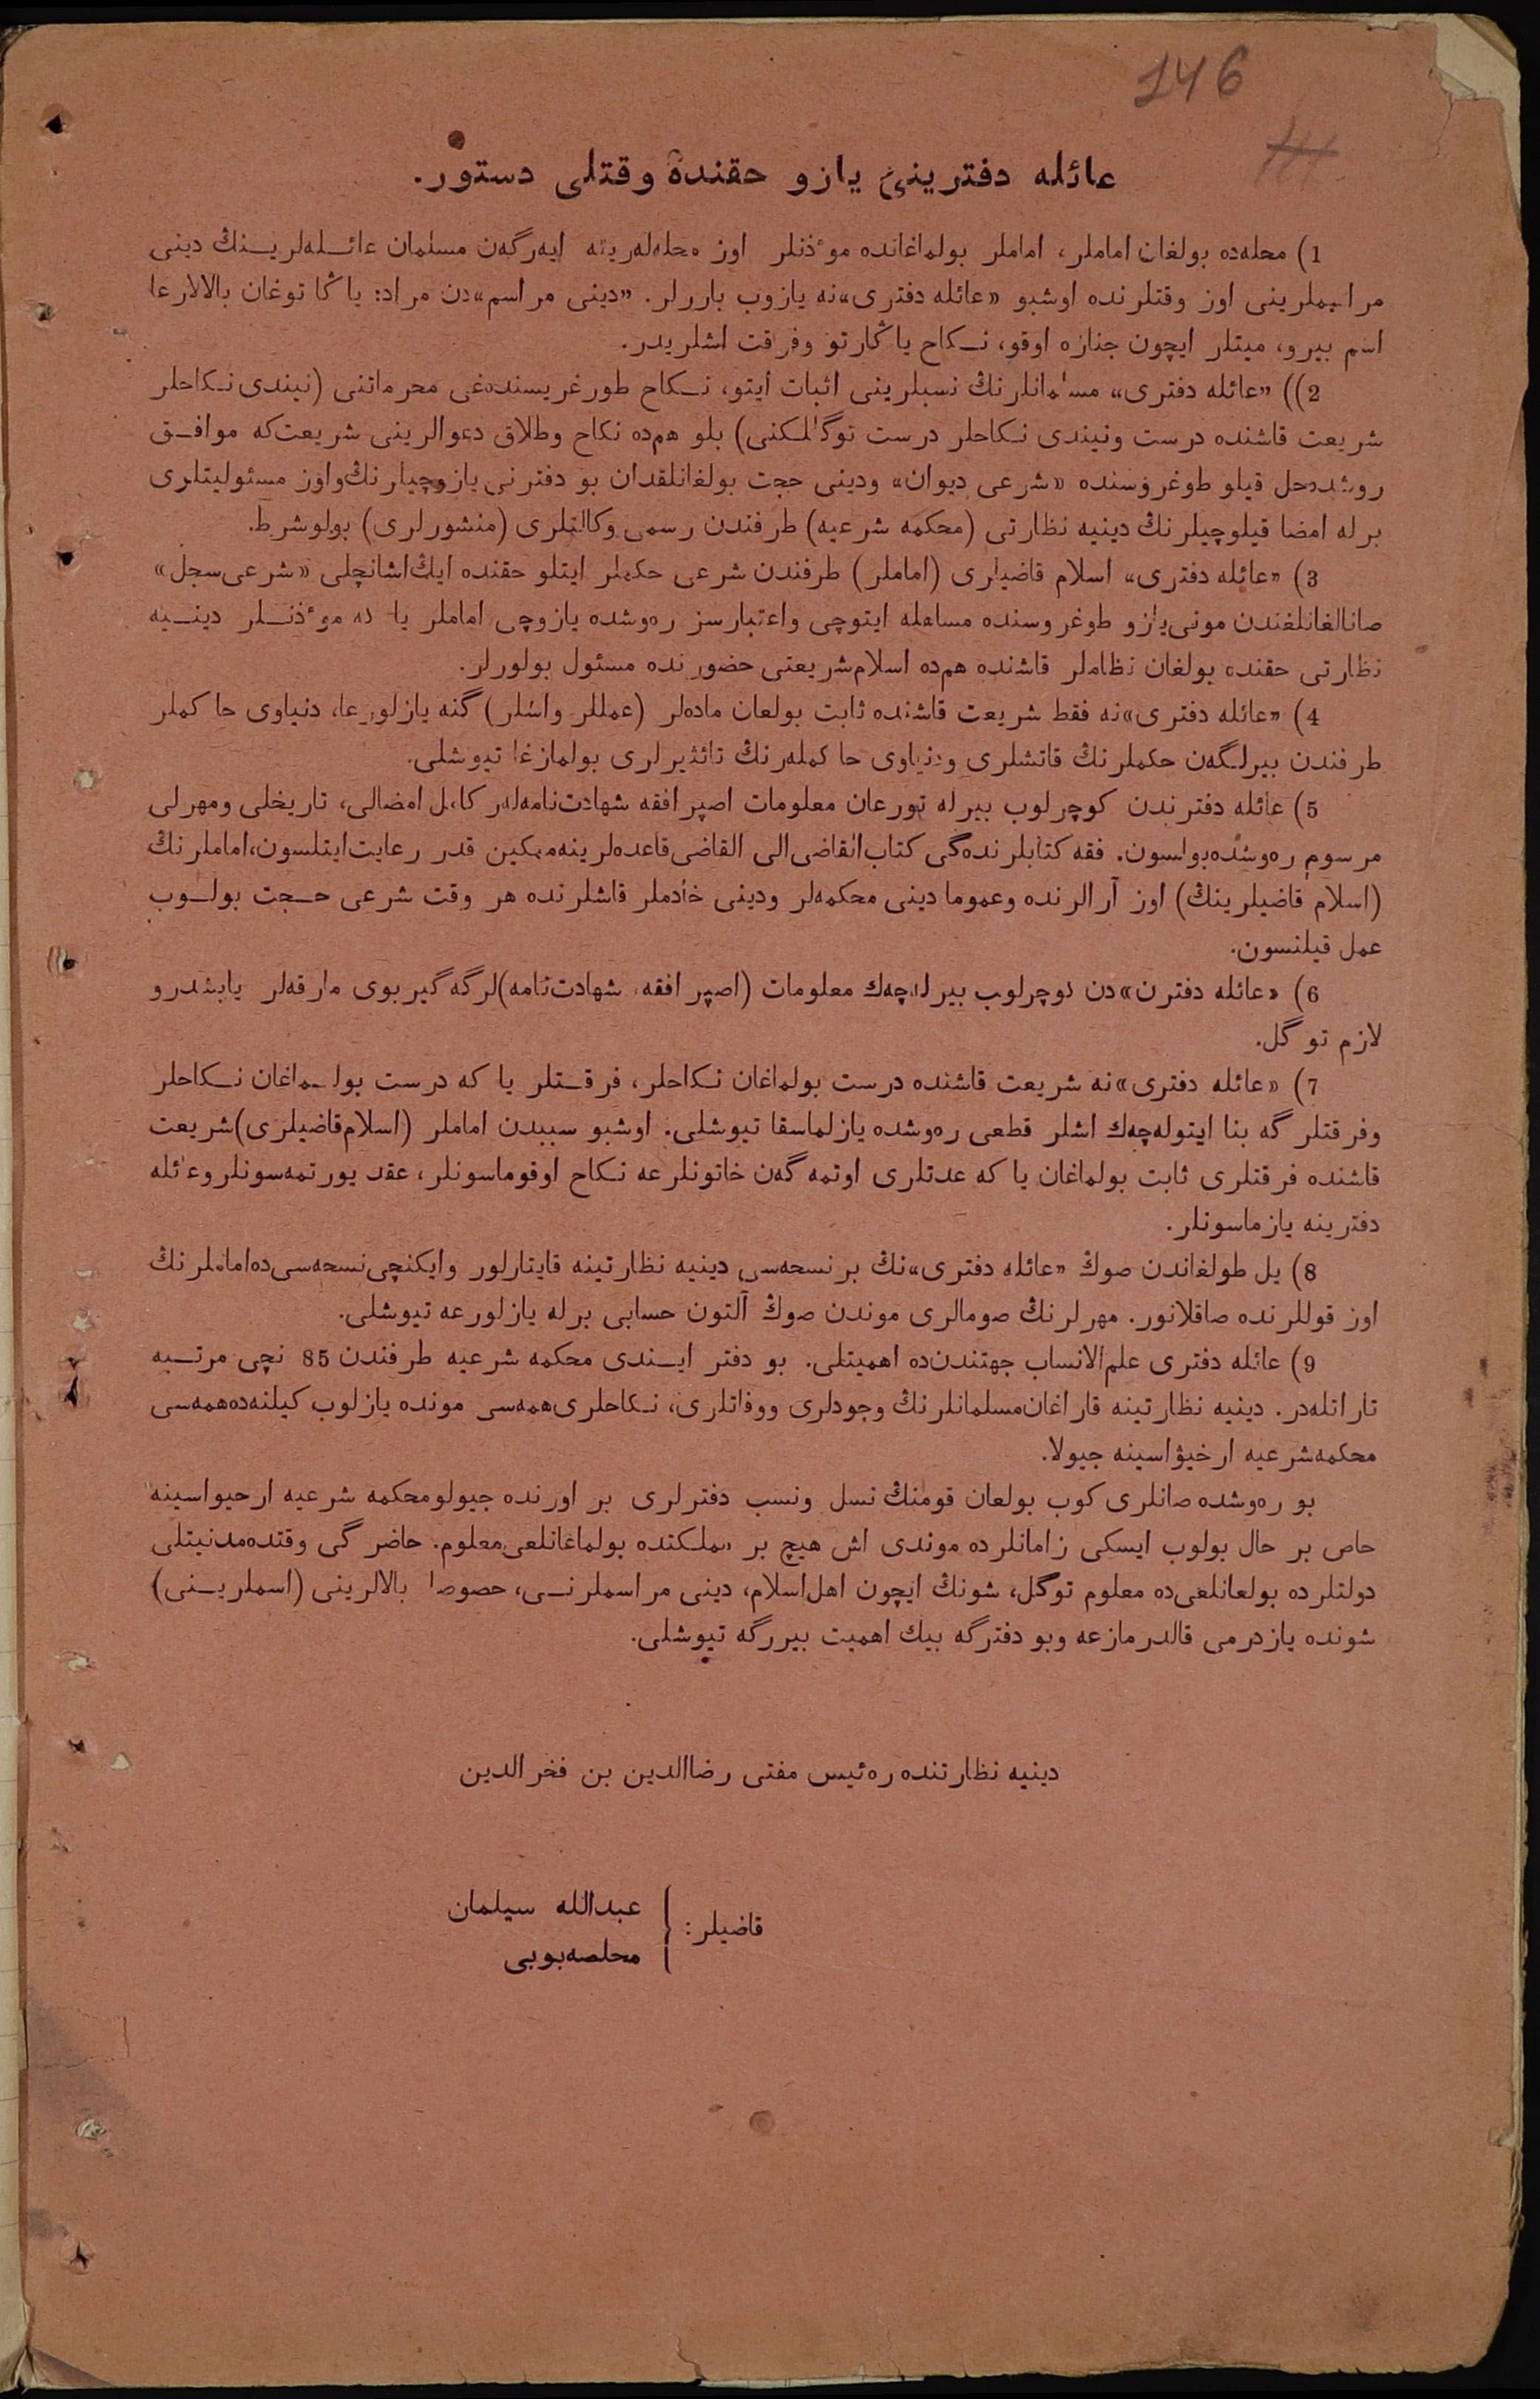 146
عائله دفترینی یازو حقنده وقتلی دستور.
1) محله‌ده بولغان اماملر، اماملر بولماغانده موٴذنلر اوز محله‌لەرینه ایەرگەن مسلمان عائـله‌لریـنڭ دینی
مراسملرینی اوز وقتلرنده اوشبو «عائله دفتری»نه یازوب باررلر. «دینی مراسم»دن مراد: یاڭا توغان بالالارعا
اسم بیرو، میتلر ایچون جنازه اوقو، نـکاح یاڭارتو وفرقت اشلریدر.
2)) «عائله دفتری» مسلمانلرنڭ نسبلرینی اثبات ایتو، نـکاح طورغریسنده‌غی محرماتنی (نیندی نـکاحلر
شریعت قاشنده درست ونیندی نـکاحلر درست توگللـکنی) بلو هم‌ده نکاح وطلاق دعوالرینی شریعت‌که موافـق
روشده‌حل قیلو طوغروسنده «شرعی دیوان» ودینی حجت بولغانلقدان بو دفترنی یازوچیلرنڭ‌واوز مسئولیتلری
برله امضا قیلوچیلرنڭ دینیه نظارتی (محکمه شرعیه) طرفندن رسمی وکالتلری (منشورلری) بولوشرط.
3) «عائله دفتری» اسلام قاضیلری (اماملر) طرفندن شرعی حکملر ایتلو حقنده ایڭ‌اشانچلی «شرعی‌سجل»
صانالغانلغندن مونی‌یازو طوغروسنده مساهله ایتوچی واعتبارسز ره‌وشده یازوچی اماملر یا که موٴذنـلر دینـیه
نظارتی حقنده بولغان نظاملر قاشنده هم‌ده اسلام‌شریعتی حضورنده مسئول بولورلر.
4) «عائله دفتری»نه فقط شریعت قاشنده ثابت بولعان ماده‌لر (عمللر واشلر) گنه یازلورعا، دنیاوی حاکملر
طرفندن بیرلـگەن حکملرنڭ قاتشلری ودنیاوی حاکملەرنڭ تائثیرلری بولمازغا تیوشلی.
5) عائله دفترندن کوچرلوب بیرله تورعان معلومات اصپرافقه شهادت‌نامه‌لەر کامل امضالی، تاریخلی ومهرلی
مرسوم ره‌وشده‌بولسون. فقه کتابلرنده‌گی کتاب‌القاضی‌الی القاضی‌قاعده‌لرینه‌ممکین قدر رعایت‌ایتلسون،اماملرنڭ
(اسلام قاضیلرینڭ) اوز آرالرنده وعموما دینی محکمه‌لر ودینی خادملر قاشلرنده هر وقت شرعی حـجت بولـوب
عمل قیلنسون.
6) «عائله دفترن»دن کوچرلوب بیرله‌چەك معلومات (اصپرافقه، شهادت‌نامه)لرگه گیربوی مارقه‌لر یابشدرو
لازم توگل.
7) «عائله دفتری»نه شریعت قاشنده درست بولماغان نـکاحلر، فرقـتلر یا که درست بولـماغان نـکاحلر
وفرقتلر گه بنا ایتوله‌چەك اشلر قطعی ره‌وشده یازلماسقا تیوشلی. اوشبو سببدن اماملر (اسلام‌قاضیلری)شریعت
قاشنده فرقتلری ثابت بولماغان یا که عدتلری اوتمه گەن خاتونلرعه نـکاح اوقوماسونلر، عقد یورتمه‌سونلروعائله
دفترینه یازماسونلر.
8) یل طولغاندن صوڭ «عائله دفتری»نڭ برنسحه‌سی دینیه نظارتینه قایتارلور وایکنچی‌نسحه‌سی‌ده‌اماملرنڭ
اوز قوللرنده صاقلانور. مهرلرنڭ صومالری موندن صوڭ آلتون حسابی برله یازلورعه تیوشلی.
9) عائله دفتری علم‌الانساب جهتندن‌ده اهمیتلی. بو دفتر ایـندی محکمه شرعیه طرفندن 85 نچی مرتـبه
تاراتله‌در. دینیه نظارتینه قاراغان‌مسلمانلرنڭ وجودلری ووفاتلری، نـکاحلری‌همه‌سی مونده یازلوب کیلنه‌ده‌همه‌سی
محکمه‌شرعیه ارخیۋاسینه جیولا.
بو ره‌وشده صانلری کوب بولعان قومنڭ نسل ونسب دفترلری بر اورنده جیولومحکمه شرعیه ارحیواسینه
حاص بر حال بولوب ایسکی زامانلرده موندی اش هیچ بر مملـکتده بولماغانلعی‌معلوم. حاضر گی وقتده‌مدنیتلی
دولتلرده بولعانلعی‌ده معلوم توگل، شونڭ ایچون اهل‌اسلام، دینی مراسملرنـی، حصوصا بالالرینی (اسملریـنی)
شونده یازدرمی قالدرمازعه وبو دفترگه بیك اهمیت بیررگه تیوشلی.
دینیه نظارتنده ره‌ئیس مفتی رضاالدین بن فخرالدین
قاضیلر: عبدالله سیلمان
محلصه‌بوبی